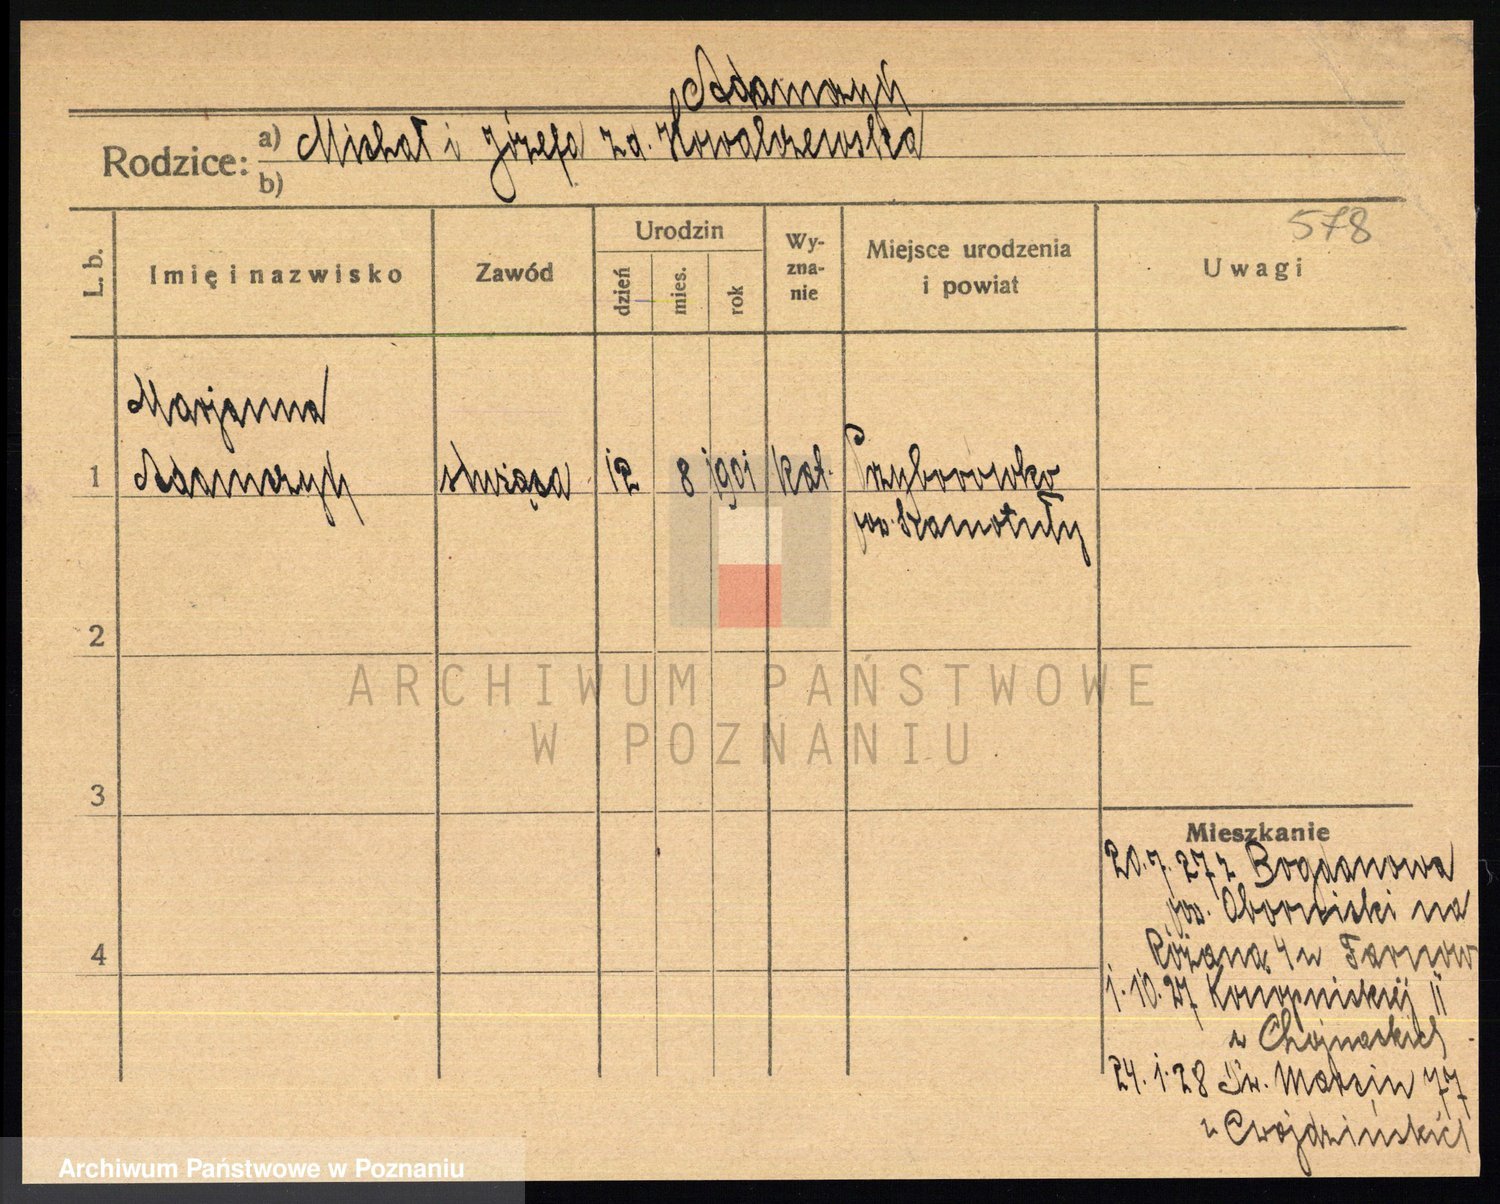 Adamczyk
Rodzice: a) Michał i Józefa zd. Kowalczewska
b)
578
L. b.
Imię i nazwisko
Zawód
Urodzin
dzień
mies.
rok
Wy-
zna-
nie
Miejsce urodzenia
i powiat
Uwagi
Marjanna
1 Adamczyk służąca 12 8 1901 kat. Przyborówko
pow. Szamotuły
2
3
4
Mieszkanie
20.7.27 z Bogdanowa
pow. Obornicki na
Różaną 4 u
1.10.27 Konopnickiej 11
u Chojnackich
24.1.28 Św. Marcin 77
u Cwojdzińskich
ARCHIWUM PAŃSTWOWE
W POZNANIU
Archiwum Państwowe w Poznaniu